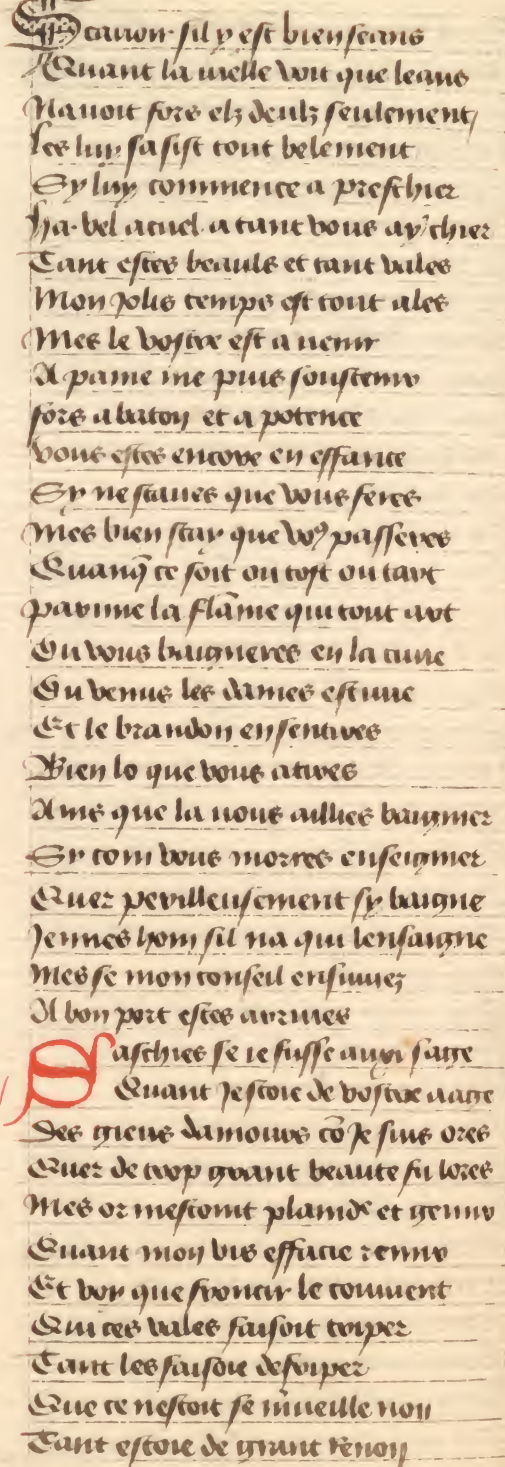 Scauoir sil y est bien seans
Quant la uielle voit que leans
Nauoit fors elz deulz seulement
Les luy sasist tout belement
Sy luy commence a preschier
Ha bel acuel a tant vous ay chier
Tant estes beauls et tant vales
Mon jolis temps est tout ales
Mes le vostre est a uenir
A paine me puis soustenir
fors a baton et a potence
vous estes encore en effance
Sy ne scaues que vous feres
Mes bien scay que vo9 passeres
Quanq̃ ce soit ou tost ou tart
parmie la flãme qui tout art
Ou vous baigneres en la cuue
Ou venus les dames estuue
Et le brandon ensentires
Bien lo que vous atires
Ains que la uous aillies baignier
Sy com vous morres enseignier
Quer perilleusement sy baigne
Jennes hom sil na qui lensaigne
Mes se mon conseil ensiuuez
A bon port estes arriues
Saschies se ie fusse auxi sage
Quant jestoie de vostre aage
Des gieus damours cõ je suis ores
Quer de trop grant beaute fu lores
Mes or mescouit plaindre et gemir
Quant mon vis efface remir
Et voy que froncir le couuient
Qui ces vales faisoit triper
Tant les faisoie desriper
Que ce nestoit se m̃ueille non
Tant estoie de grant renon